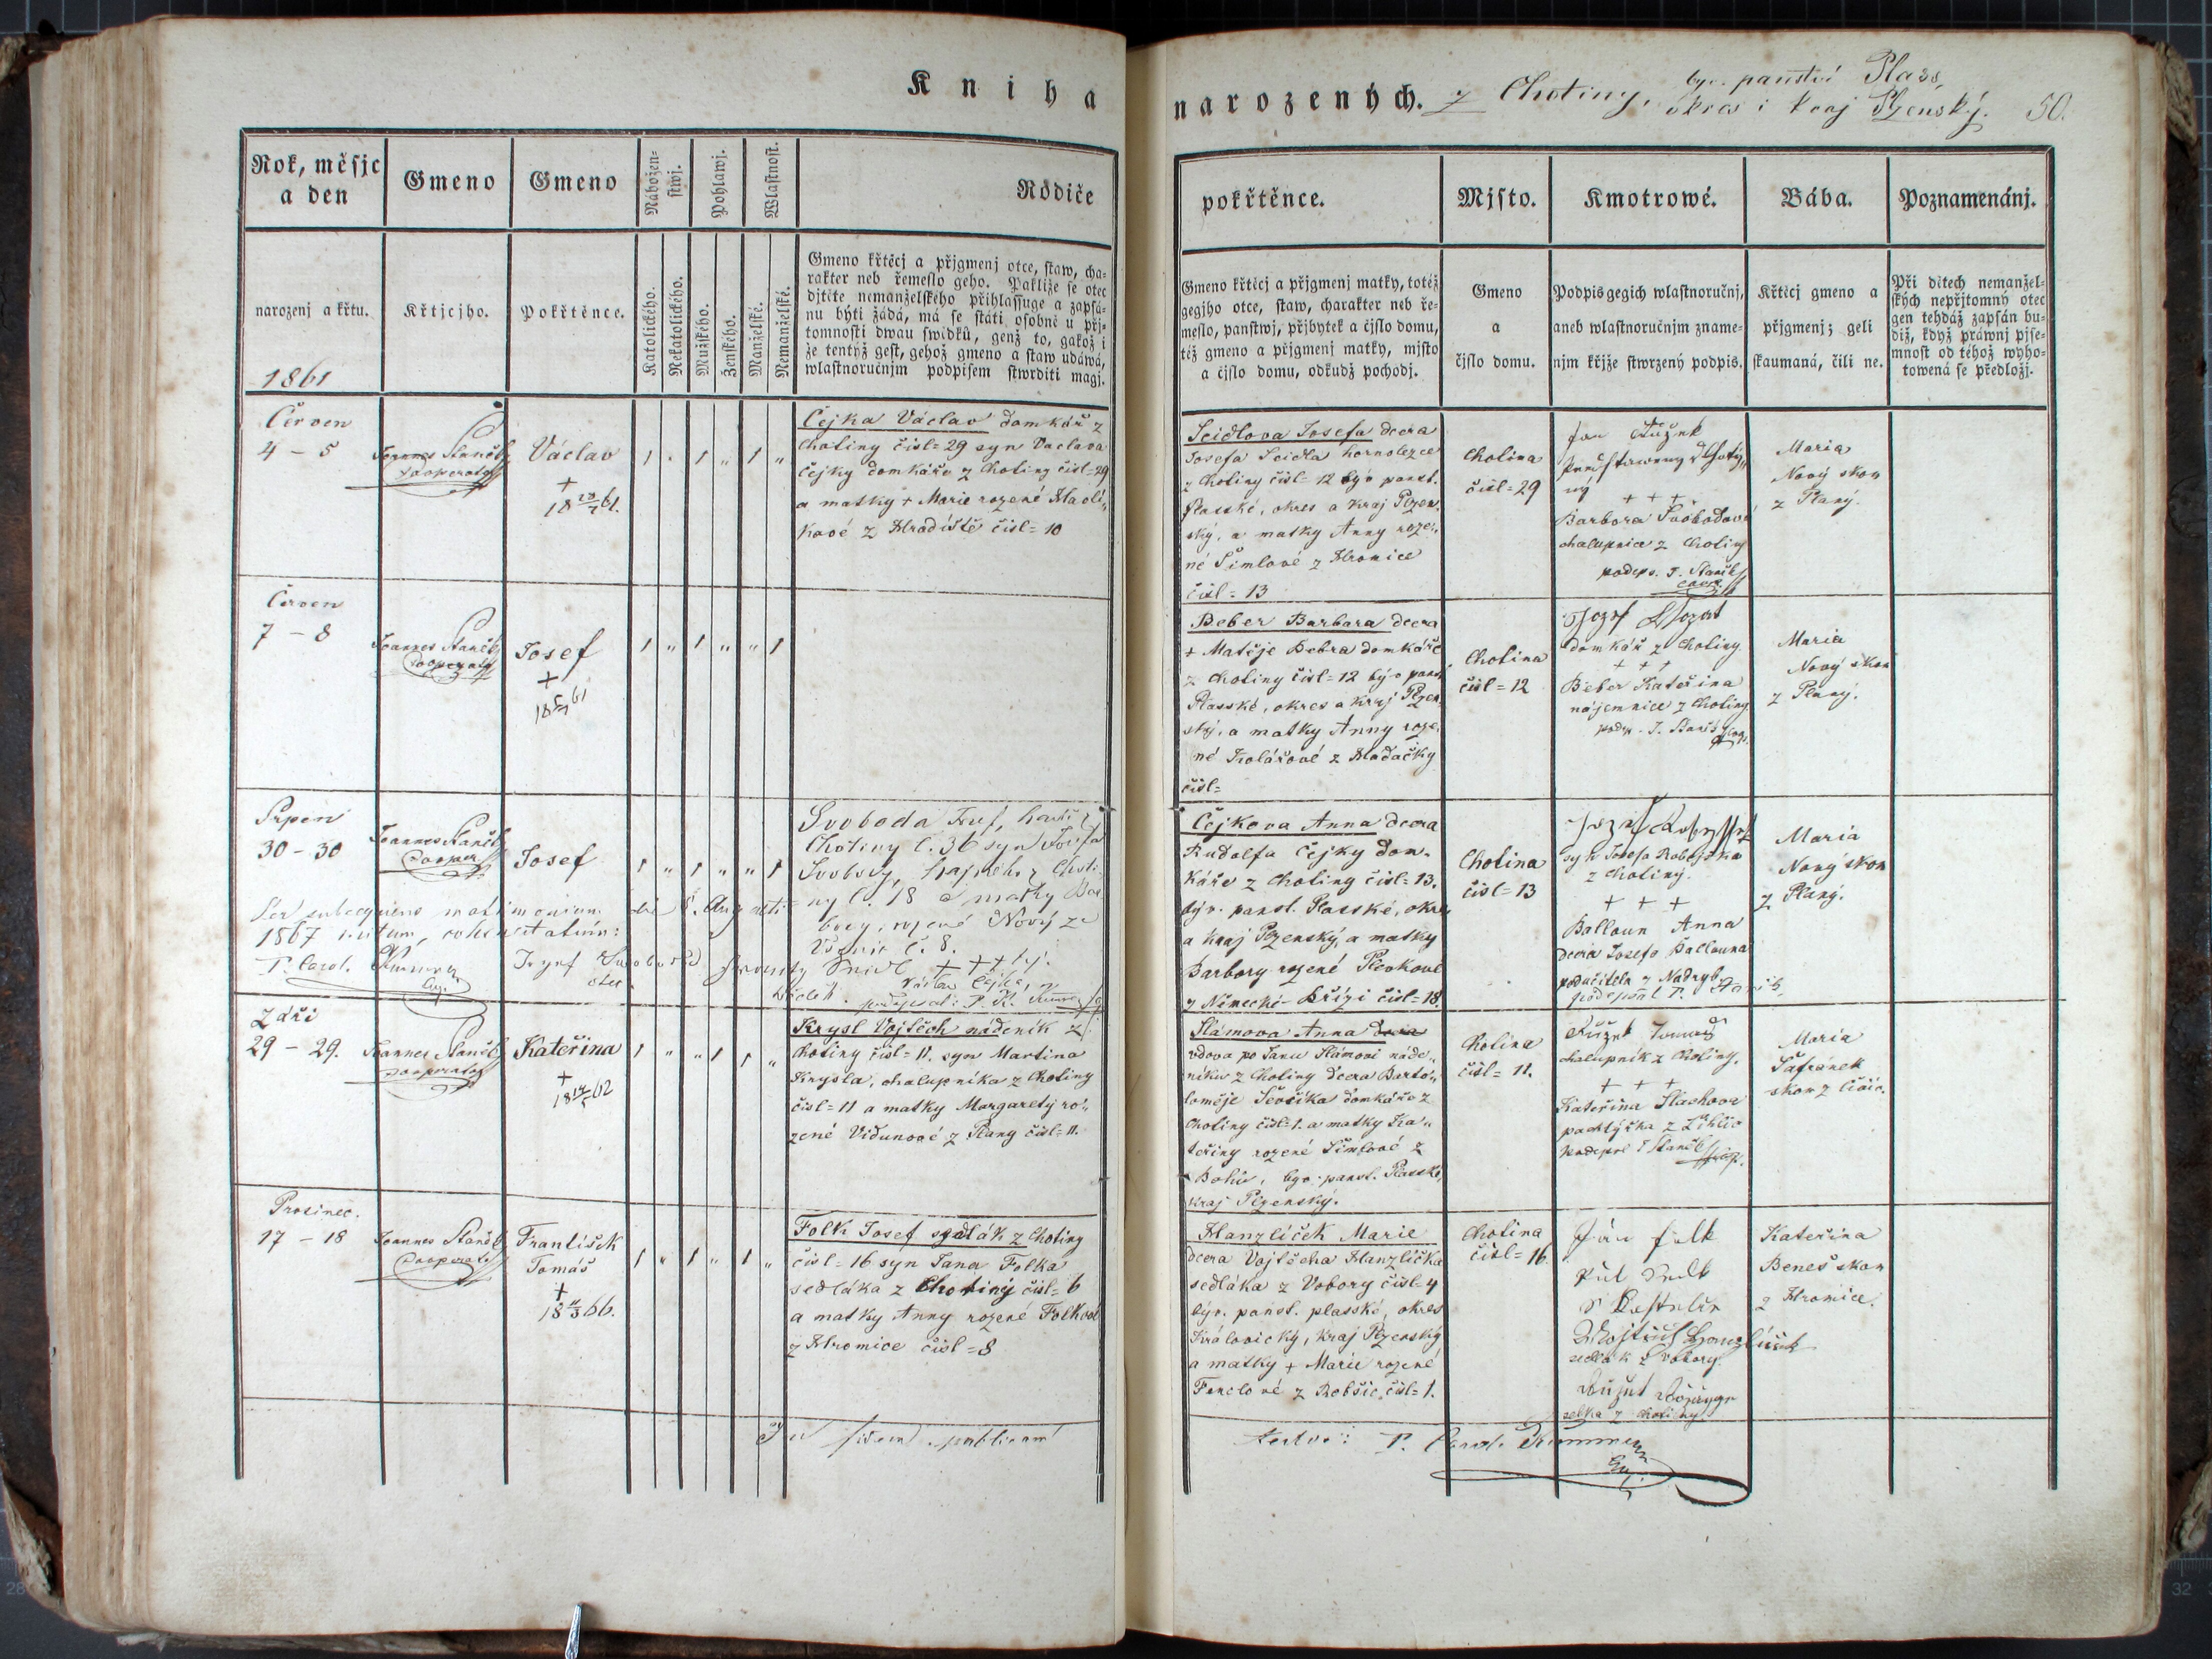 Kniha
narozených. z Chotiny, býv. panství Plass,
okres i kraj Plzenský. 50.
Rok, měsjc
a den
Gmeno
Gmeno
Nábožen-
stwj.
Pohlawj.
Wlastnost.
Rodiče
narozenj a křtu.
1861
Křtjcjho.
Pokřtěnce.
Katolického.
Nekatolického.
Mužského.
Ženského.
Manželské.
Nemanželské.
Gmeno křtěcj a přjgmenj otce, staw, cha-
rakter neb řemeslo geho. Pakliže se otec
djtěte nemanželského přihlassuge a zapsá-
nu býti žádá, má se státi osobně u přj-
tomnosti dwau swědků, genž to, gakož i
že tentýž gest, gehož gmeno a staw udáwá,
wlastnoručnjm podpisem stwrditi magj.
pokřtěnce.
Mjsto.
Kmotrowé.
Bába.
Poznamenánj.
Gmeno křtěcj a přjgmenj matky, totéž
gegjho otce, staw, charakter neb ře-
meslo, panstwj, přjbytek a čjslo domu,
též gmeno a přjgmenj matky, mjsto
a čjslo domu, odkudž pochodj.
Gmeno
a
čjslo domu.
Podpis gegich wlastnoručnj,
aneb wlastnoručnjm zname-
njm křjže stwrzený podpis.
Křtěcj gmeno a
přjgmenj; geli
skaumaná, čili ne.
Při dětech nemanžel-
ských nepřjtomný otec
gen tehdáž zapsán bu-
diž, když práwnj pjse-
mnost od téhož wyho-
towená se předložj.
Červen
4 - 5
Joannes Staněk
Cooperator
Václav
+
18 28/7 61.
1 „ 1 „ 1 „
Čejka Václav domkář z
Chotiny čísl=29 syn Vaclava
Čejky domkáře z Chotiny čísl=29
a matky + Marie rozené
z Hradiště čísl=10
Seidlova Josefa dcera
Josefa Seidla hornolezce
z Chotiny čísl=12 býv panst.
Plasské, okres a kraj Plzen„
ský, a matky Anny roze„
né Šimlové z Hromice
čísl=13
Chotina
čísl=29
Jan Růžek
+ + +
Barbora Svobodová
chalupnice z Chotiny
podeps. J. Staněk
Maria
Nový skou
z Planý.
Červen
7 - 8
Joannes Staněk
Cooperator
Josef
+
1 „ 1 „ „ 1
Beber Barbara dcera
+ Matěje Bebra domkáře
z Chotiny čísl=12 býv panst
Plasské, okres a kraj Plzen„
ský, a matky Anny roze„
né Kolářové z Hadačky
čísl=
Chotina
čísl=12
domkář z Chotiny
+ + +
Beber Kateřina
nájemnice z Chotiny.
podp. J. Staněk
Maria
Nový skou
z Planý.
Srpen
30 - 30
Joannes Staněk
Cooper
Josef
1 „ 1 „ „ 1
Svoboda Josef, havíř z
Chotiny č. 36 syn Josefa
Svobody, z Choti
ny č. 18 a matky Bar
bory, rozené Nový ze
č. 8.
Per subsequens matrimonium die 6. Augusti
1867 initum,
P. Carol.
Josef Svoboda
otec
+++
Václav Čejka,
svědek.
podepsal: P. K.
Čejkova Anna dcera
Rudolfa Čejky dom„
káře z Chotiny čísl=13.
býv. panst. Plasské, okres
a kraj Plzenský, a matky
Barbory rozené Plevkové
z Německé Břízi čísl=18.
Chotina
čísl=13
syn Josefa
z Chotiny.
+ + +
Balloun Anna
dcera Josefa Ballouna
podučitela z Nadryb
podepsal P. Staněk
Maria
Nový skou
z Planý.
Září
29 - 29.
Joannes Staněk
Cooperator
Kateřina
+
1 „ „ 1 1 „
Krysl Vojtěch nádeník z
Chotiny čísl=11. syn Martina
Krysla, chalupníka z Chotiny
čísl=11 a matky Margarety ro„
zené Vidunové z Plany čísl=11.
Slámova Anna dcera
vdova po Janu Slámovi náde„
níku z Chotiny dcera Barto„
loměje Ševčíka domkáře z
Chotiny čísl=1. a matky Ka„
teřiny rozené Šimlové z
Bohů, býv. panst. Plasské,
kraj Plzenský.
Chotina
čísl=11.
Růžek Tomáš
chalupník z Chotiny.
+ + +
Kateřina Stachova
pachtýřka z
Staněk
Maria
Šafránek
skou z
Prosinec.
17 - 18
Joannes Staněk
Cooperator
František
Tomáš
+
1 „ 1 „ 1 „
Folk Josef sedlák z Chotiny
čísl=16 syn Jana Folka
sedláka z Chotiný čísl=6
a matky Anny rozené Folkové
z Hromice čísl=8
Hanzlíček Marie
dcera Vojtěcha Hanzlíčka
sedláka z Vobory čísl=4
býv. panst. plasské, okres
Královický, kraj Plzenský
a matky + Marie rozené
Fenclové z Robšic čísl=1.
Chotina
čísl=16
Jan Folk
Wojtěch Hanzlíček
sedlák z Vobory.
selka z Chotiny
Kateřina
Beneš skou
z Hromice.
In fidem publicam
P. Carol.